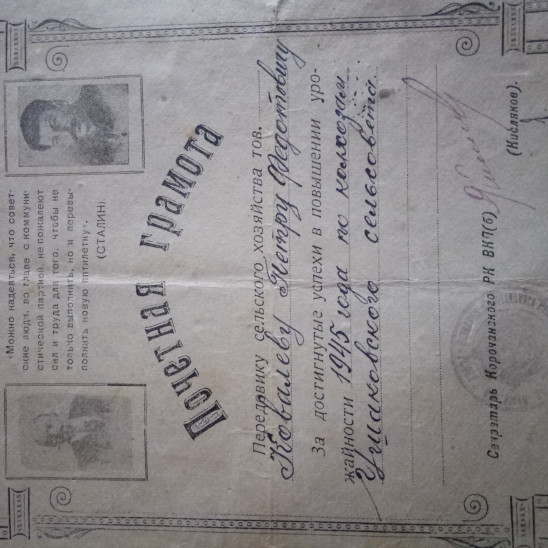 «Можно надеяться, что совет-
ские люди, во главе с коммуни-
стической партией, не пожалеют
сил и труда для того, чтобы не
только выполнить, но и перевы-
полнить новую пятилетку».
(СТАЛИН)
Почетная грамота
Передовику сельского хозяйства тов.
Ковалеву Петру Федотовичу
За достигнутые успехи в повышении уро-
жайности 1945 года по колхозам
Ушаковского сельсовета
Секретарь Корочанского РК ВКП(б)
(Кисляков).